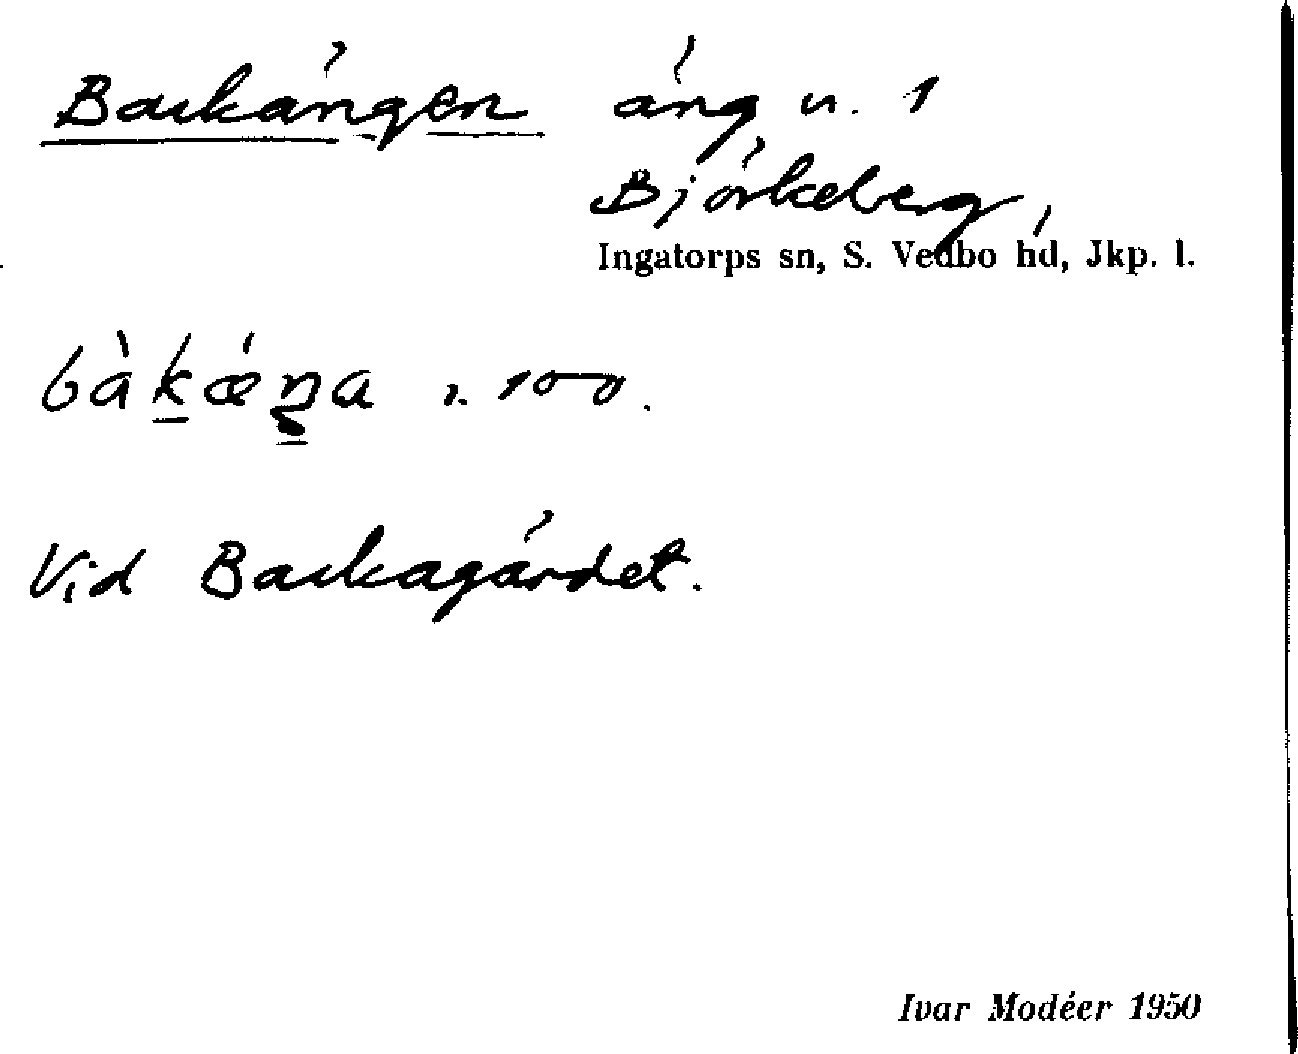 Backängen äng u. 1
Björkeberg,
Ingatorps sn, S. Vedbo hd, Jkp. l.
bàkǽŋa 100.
Vid Backagärdet.
Ivar Modéer 1950